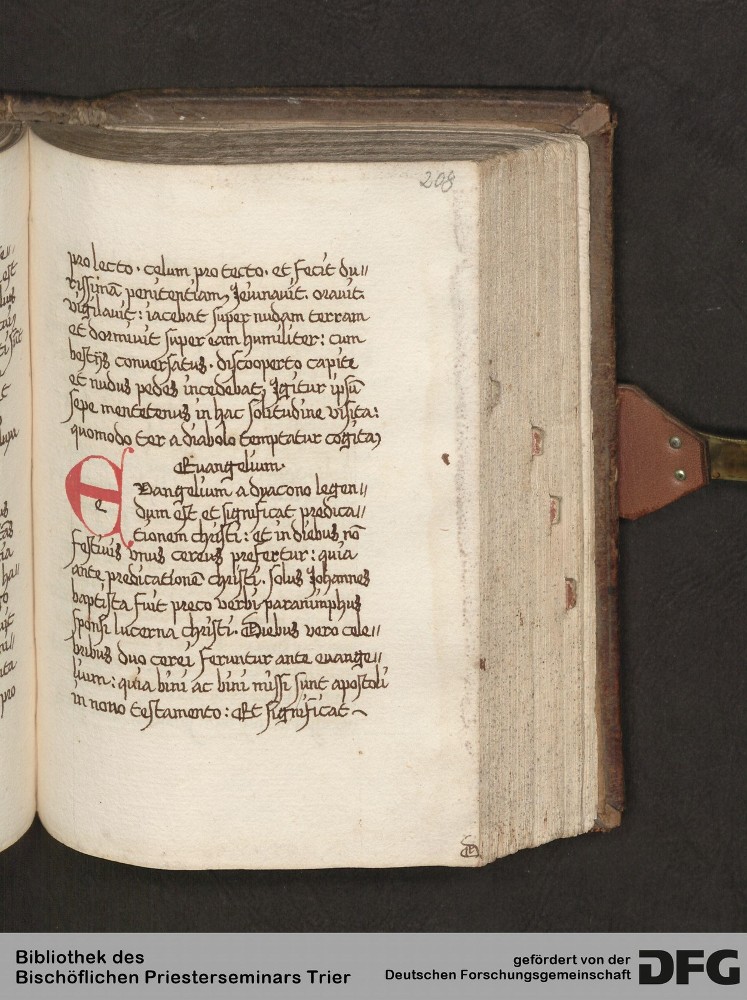 208
pro lecto. celum pro tecto. et fecit du//
rissimā penitentiam, Jeiunauit. orauit.
vigilauit: iacebat super nudam terram
et dormiuit super eam humiliter: cum
bestijs conuersatus. discooperto capite
et nudus pedes incedebat, Igitur ipsū
sepe mentetenus in hac solitudine visita:
quomodo ter a diabolo temptatur cogita,
Euangelium.
Evangelium a dyacono legen//
dum est et significat predica//
tionem christi: et in diebus nō
festiuis vnus cereus prefertur: quia
ante predicationē christi. solus Johannes
baptista fuit preco verbi paranimphus
sponsi lucerna christi. Diebus vero cele//
bribus duo cerei feruntur ante euange//
lium: quia bini ac bini missi sunt apostoli
in nouo testamento: Et significat
Bibliothek des
Bischöflichen Priesterseminars Trier
gefördert von der
Deutschen Forschungsgemeinschaft DFG